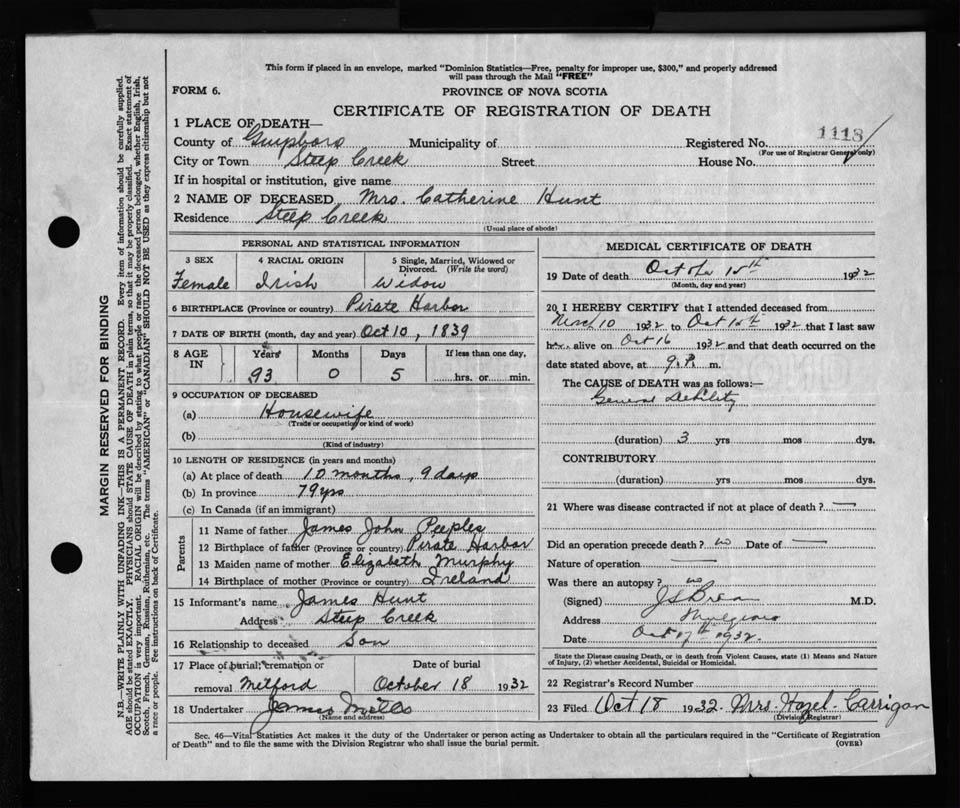 This form if placed in an envelope, marked "Dominion Statistics—Free, penalty for improper use, $300," and properly addressed
will pass through the Mail "FREE"
FORM 6.
PROVINCE OF NOVA SCOTIA
CERTIFICATE OF REGISTRATION OF DEATH
1 PLACE OF DEATH—
County of Guysboro Municipality of Registered No. 1118
(For use of Registrar General only)
City or Town Steep Creek Street House No.
If in hospital or institution, give name
2 NAME OF DECEASED Mrs. Catherine Hunt
Residence Steep Creek
(Usual place of abode)
PERSONAL AND STATISTICAL INFORMATION
3 SEX 4 RACIAL ORIGIN 5 Single, Married, Widowed or
Divorced. (Write the word)
Female Irish Widow
6 BIRTHPLACE (Province or country) Pirate Harbor
7 DATE OF BIRTH (month, day and year) Oct 10, 1839
8 AGE IN Years Months Days If less than one day,
93 0 5 hrs. or min.
9 OCCUPATION OF DECEASED
(a) Housewife
(Trade or occupation or kind of work)
(b)
(Kind of industry)
10 LENGTH OF RESIDENCE (in years and months)
(a) At place of death 10 months, 9 days
(b) In province 79 yrs
(c) In Canada (if an immigrant)
Parents
11 Name of father James John Peeples
12 Birthplace of father (Province or country) Pirate Harbor
13 Maiden name of mother Elizabeth Murphy
14 Birthplace of mother (Province or country) Ireland
15 Informant's name James Hunt
Address Steep Creek
16 Relationship to deceased Son
17 Place of burial, cremation or Date of burial
removal Melford October 18 1932
18 Undertaker James Mills
(Name and address)
MEDICAL CERTIFICATE OF DEATH
19 Date of death 1932
(Month, day and year)
20 I HEREBY CERTIFY that I attended deceased from
10 1932 to Oct 1932 that I last saw
h alive on Oct 16 1932 and that death occurred on the
date stated above, at 9 P. m.
The CAUSE of DEATH was as follows:—
General Debility
(duration) 3 yrs mos dys.
CONTRIBUTORY
(duration) yrs mos dys.
21 Where was disease contracted if not at place of death? —
Did an operation precede death? no Date of —
Nature of operation —
Was there an autopsy? no
(Signed) M.D.
Address Mulgrave
Date Oct 17th 1932.
State the Disease causing Death, or in death from Violent Causes, state (1) Means and Nature
of Injury, (2) whether Accidental, Suicidal or Homicidal.
22 Registrar's Record Number
23 Filed Oct 18 1932. Mrs. Hazel Carrigan
(Division Registrar)
Sec. 46—Vital Statistics Act makes it the duty of the Undertaker or person acting as Undertaker to obtain all the particulars required in the "Certificate of Registration
of Death" and to file the same with the Division Registrar who shall issue the burial permit.
(OVER)
MARGIN RESERVED FOR BINDING
N.B.—WRITE PLAINLY WITH UNFADING INK—THIS IS A PERMANENT RECORD. Every item of information should be carefully supplied.
AGE should be stated EXACTLY. PHYSICIANS should STATE CAUSE OF DEATH in plain terms, so that it may be properly classified. Exact statement of
OCCUPATION is very important. RACIAL ORIGIN will be described by stating to what people or race the deceased person belonged, whether English, Irish,
Scotch, French, German, Russian, Ruthenian, etc. The terms "AMERICAN" or "CANADIAN" SHOULD NOT BE USED as they express citizenship but not
a race or people. See instructions on back of Certificate.